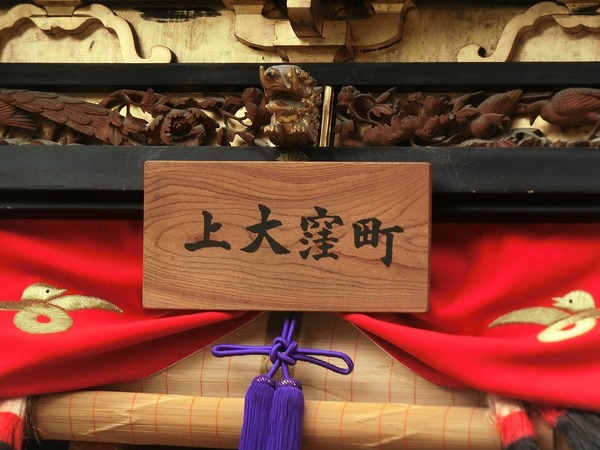 上大窪町